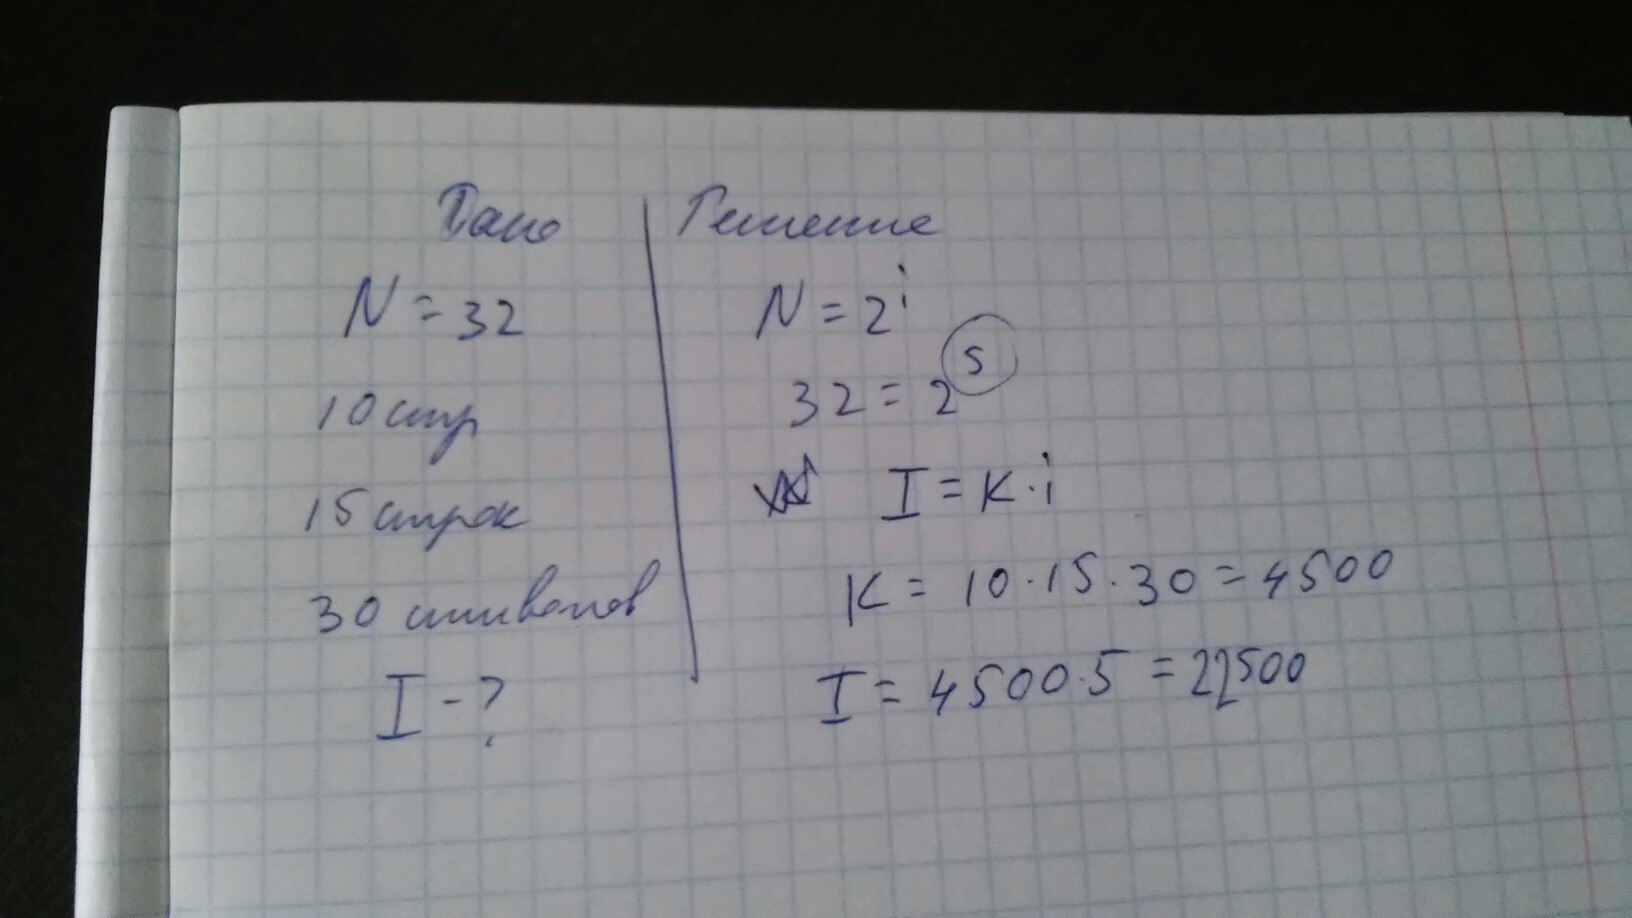 Дано
N = 32
10 стр
15 строк
30 символов
I - ?
Решение
N = 2^i
32 = 2^5
I = K · i
K = 10 · 15 · 30 = 4500
I = 4500 · 5 = 22500